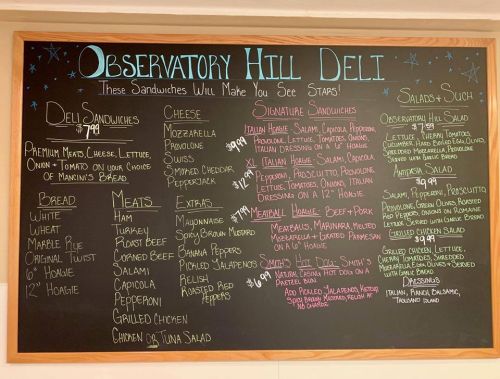 Observatory Hill Deli
These Sandwiches Will Make You See Stars!
Deli Sandwiches
$7.99
Premium Meats, Cheese, Lettuce,
Onion + Tomato on your Choice
of Mancini's Bread
Bread
White
Wheat
Marble Rye
Original Twist
6" Hoagie
12" Hoagie
Meats
Ham
Turkey
Roast Beef
Corned Beef
Salami
Capicola
Pepperoni
Grilled Chicken
Chicken or Tuna Salad
Cheese
Mozzarella
Provolone
Swiss
Smoked Cheddar
Pepperjack
Extras
Mayonnaise
Spicy Brown Mustard
Banana Peppers
Pickled Jalapenos
Relish
Roasted Red
Peppers
Signature Sandwiches
Italian Hoagie Salami, Capicola, Pepperoni,
Provolone, Lettuce, Tomatoes, Onions,
Italian Dressing on a 6" Hoagie
$9.99
XL Italian Hoagie Salami, Capicola,
Pepperoni, Prosciutto, Provolone,
Lettuce, Tomatoes, Onions, Italian
Dressing on a 12" Hoagie
$12.99
Meatball Hoagie Beef + Pork
Meatballs, Marinara, Melted
Mozzarella + Grated Parmesan
on a 6" Hoagie
$7.99
Smith's Hot Dog Smith's
Natural Casing Hot Dog on a
Pretzel Bun
$6.99
Add Pickled Jalapenos, Ketchup,
Spicy Brown Mustard, Relish at
No Charge
Salads + Such
Observatory Hill Salad
$7.59
Lettuce, Cherry Tomatoes,
Cucumber, Hard Boiled Egg, Olives,
Shredded Mozzarella, Provolone
Served with Garlic Bread
Antipasta Salad
$9.99
Salami, Pepperoni, Prosciutto,
Provolone, Green Olives, Roasted
Red Peppers, Onions on Romaine
Lettuce Served with Garlic Bread
Grilled Chicken Salad
$9.99
Grilled Chicken, Lettuce,
Cherry Tomatoes, Shredded
Mozzarella, Egg, Olives + Served
with Garlic Bread
Dressings
Italian, Ranch, Balsamic,
Thousand Island